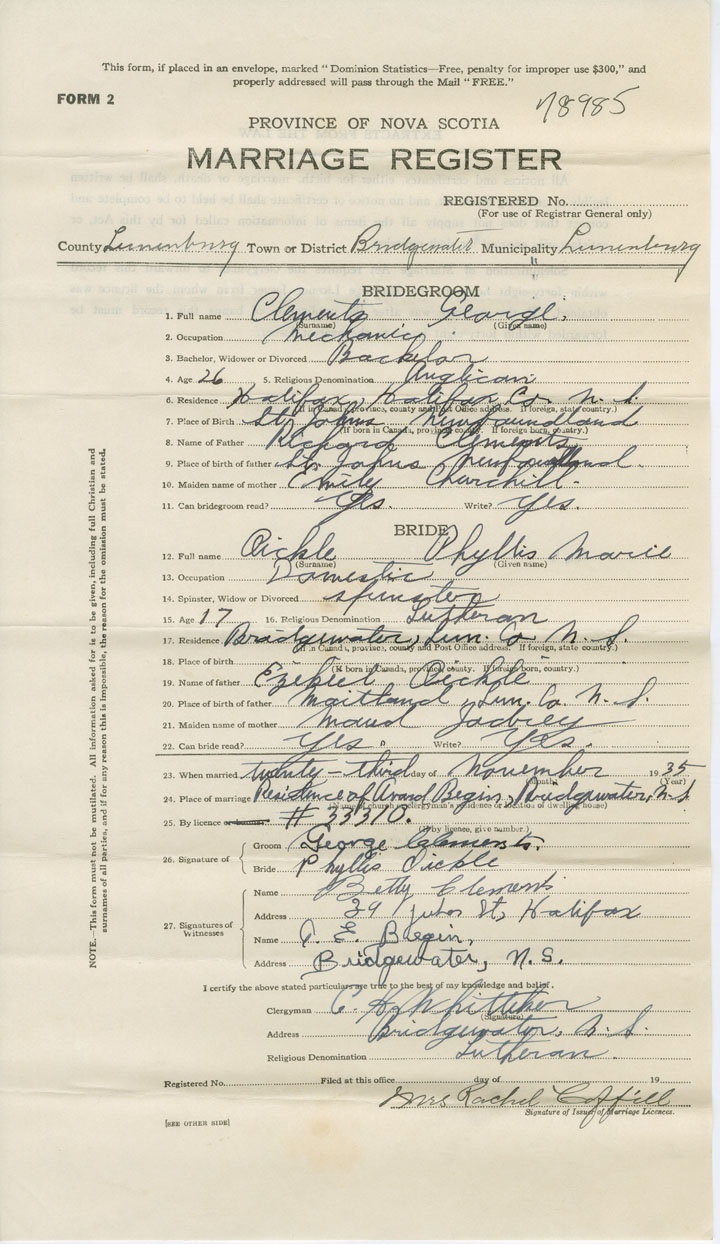 This form, if placed in an envelope, marked "Dominion Statistics—Free, penalty for improper use $300," and
properly addressed will pass through the Mail "FREE."
FORM 2
78985
PROVINCE OF NOVA SCOTIA
MARRIAGE REGISTER
REGISTERED No.
(For use of Registrar General only)
County Lunenburg Town or District Bridgewater Municipality Lunenburg
BRIDEGROOM
1. Full name Clements George.
(Surname) (Given name)
2. Occupation Mechanic.
3. Bachelor, Widower or Divorced Bachelor
4. Age 26 5. Religious Denomination Anglican
6. Residence Halifax, Halifax Co N. S.
(If in Canada, province, county and Post Office address. If foreign, state country.)
7. Place of Birth St. Johns Newfoundland
(If born in Canada, province, county. If foreign born, country.)
8. Name of Father Richard Clements
9. Place of birth of father St. Johns Newfoundland.
10. Maiden name of mother Emily Churchill.
11. Can bridegroom read? Yes. Write? Yes.
BRIDE
12. Full name Oickle Phyllis Marie
(Surname) (Given name)
13. Occupation Domestic
14. Spinster, Widow or Divorced spinster
15. Age 17 16. Religious Denomination Lutheran
17. Residence Bridgewater, Lun. Co N. S.
(If in Canada, province, county and Post Office address. If foreign, state country.)
18. Place of birth
(If born in Canada, province, county. If foreign born, country.)
19. Name of father Ezekiel Oickle
20. Place of birth of father Maitland Lun. Co. N. S.
21. Maiden name of mother Maud
22. Can bride read? Yes. Write? Yes.
23. When married twenty-third day of November 1935
(Month) (Year)
24. Place of marriage Residence of Avard Begin, Bridgewater, N. S.
25. By licence # 33310.
(If by licence, give number.)
26. Signature of
Groom George Clements.
Bride Phyllis Oickle
27. Signatures of Witnesses
Name Betty Clements
Address 39 St, Halifax
Name A. E. Begin,
Address Bridgewater, N.S.
I certify the above stated particulars are true to the best of my knowledge and belief.
Clergyman C. H. Whitteker
(Signature)
Address Bridgewater, N. S.
Religious Denomination Lutheran.
Registered No. Filed at this office day of 19
Mrs Rachel Coffill
Signature of Issuer of Marriage Licences.
[SEE OTHER SIDE]
NOTE.—This form must not be mutilated. All information asked for is to be given, including full Christian and
surnames of all parties, and if for any reason this is impossible, the reason for the omission must be stated.